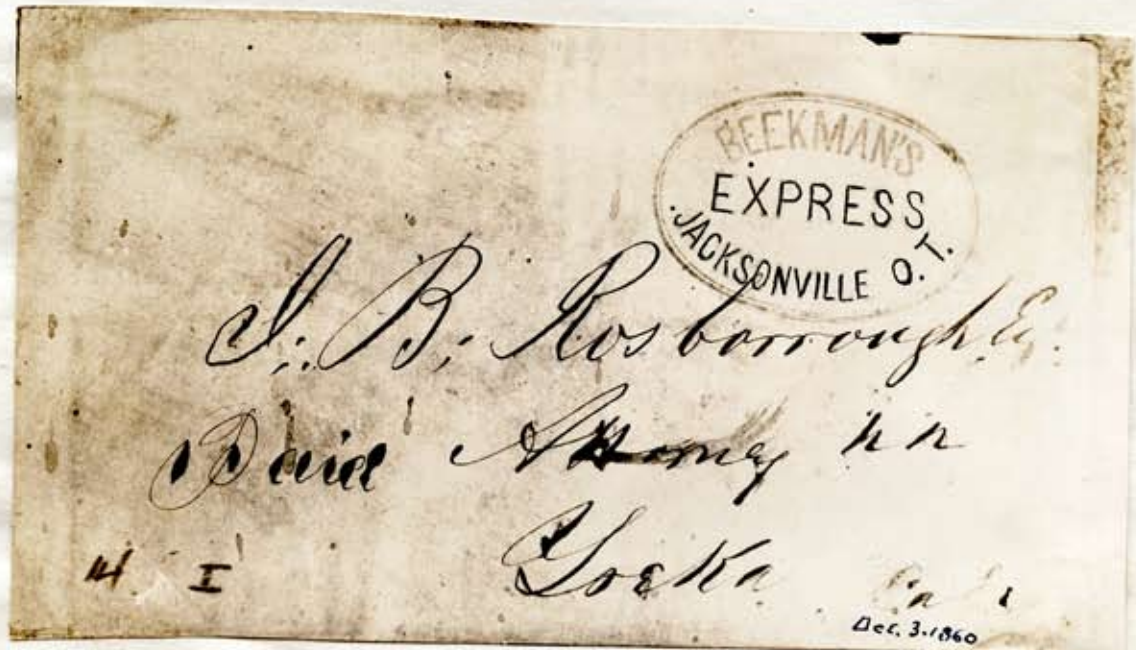 BEEKMAN'S
EXPRESS
JACKSONVILLE O.T.
J. B. Rosborrough
Attorney
Yreka
Dec. 3. 1860